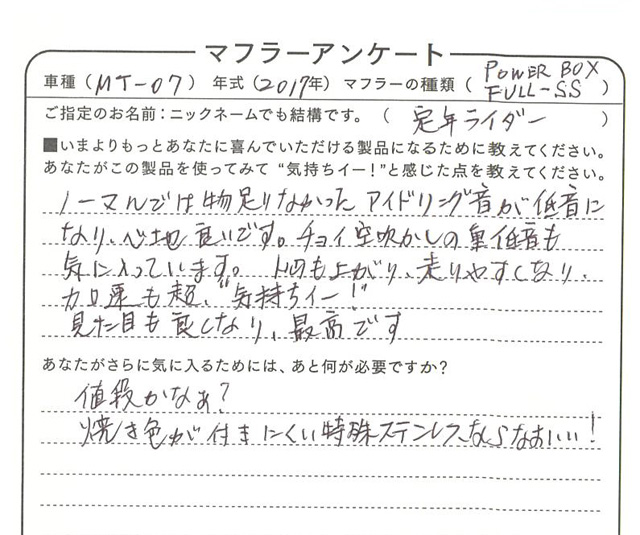 マフラーアンケート
車種(MT-07) 年式(2017年) マフラーの種類(POWER BOX FULL-SS)
ご指定のお名前:ニックネームでも結構です。(定年ライダー)
■いまよりもっとあなたに喜んでいただける製品になるために教えてください。
あなたがこの製品を使ってみて“気持ちイー!”と感じた点を教えてください。
ノーマルでは物足りなかったアイドリング音が低音に
なり、心地良いです。チョイ空吹かしの重低音も
気に入っています。 トルクも上がり、走りやすくなり、
加速も超、“気持ちイー!”
見た目も良くなり、最高です
あなたがさらに気に入るためには、あと何が必要ですか?
値段かなぁ?
焼き色が付きにくい特殊ステンレスならなおいい!